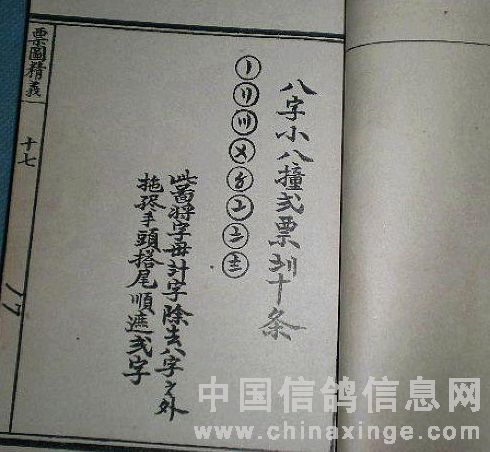 八字小八撞弍票十条
〡
〢
〣
〤
〥
〦
〧
〨
此啚將字母計字除去八字之外
拖手頭搭尾順遞弍字
票圖精義
十七
17
中国信鸽信息网
www.chinaxinge.com